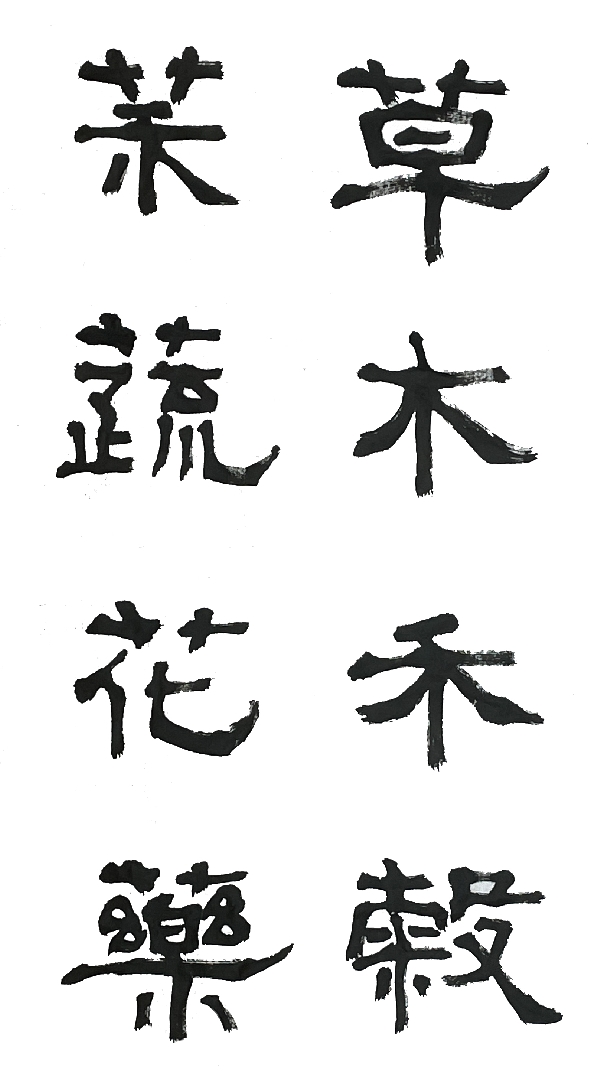 草木禾穀
蔬花藥